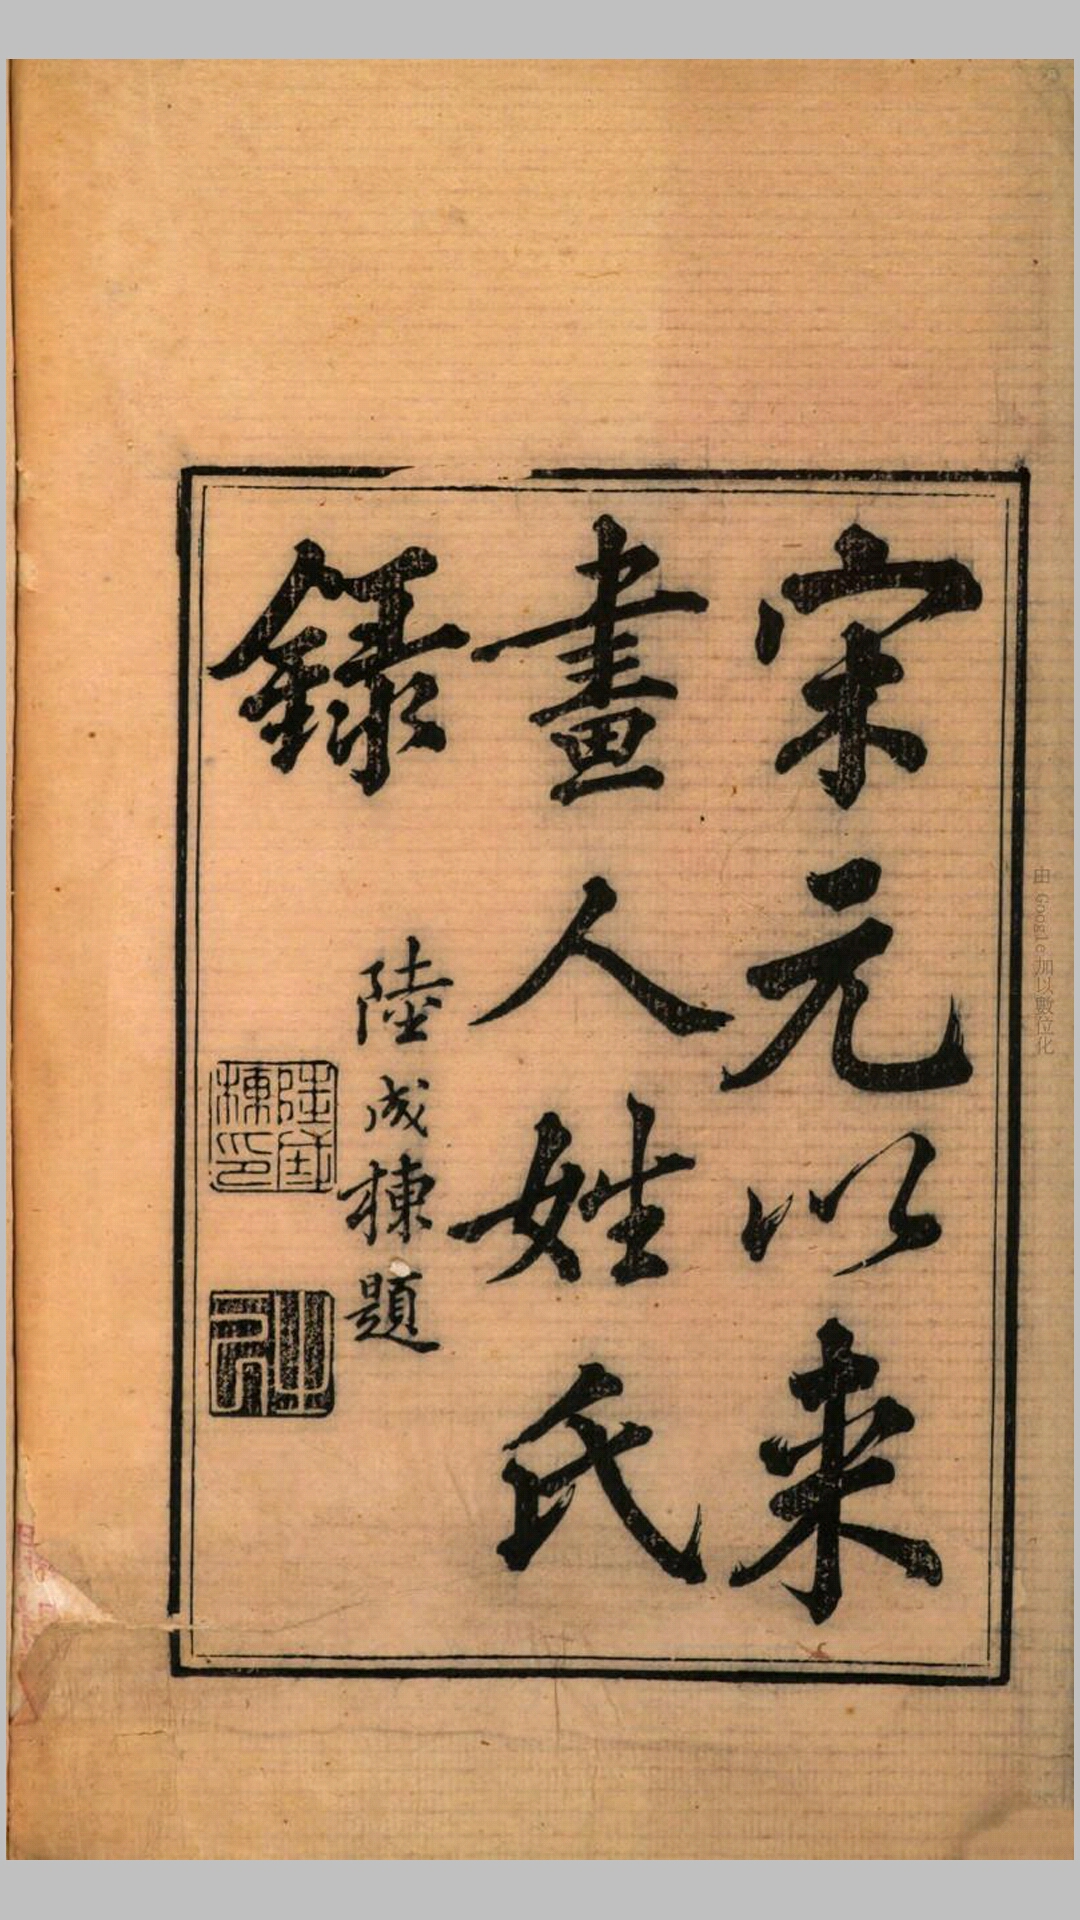 宋元以来
畫人姓氏
録
陸成棟題
陸成棟印
由 Google 加以數位化